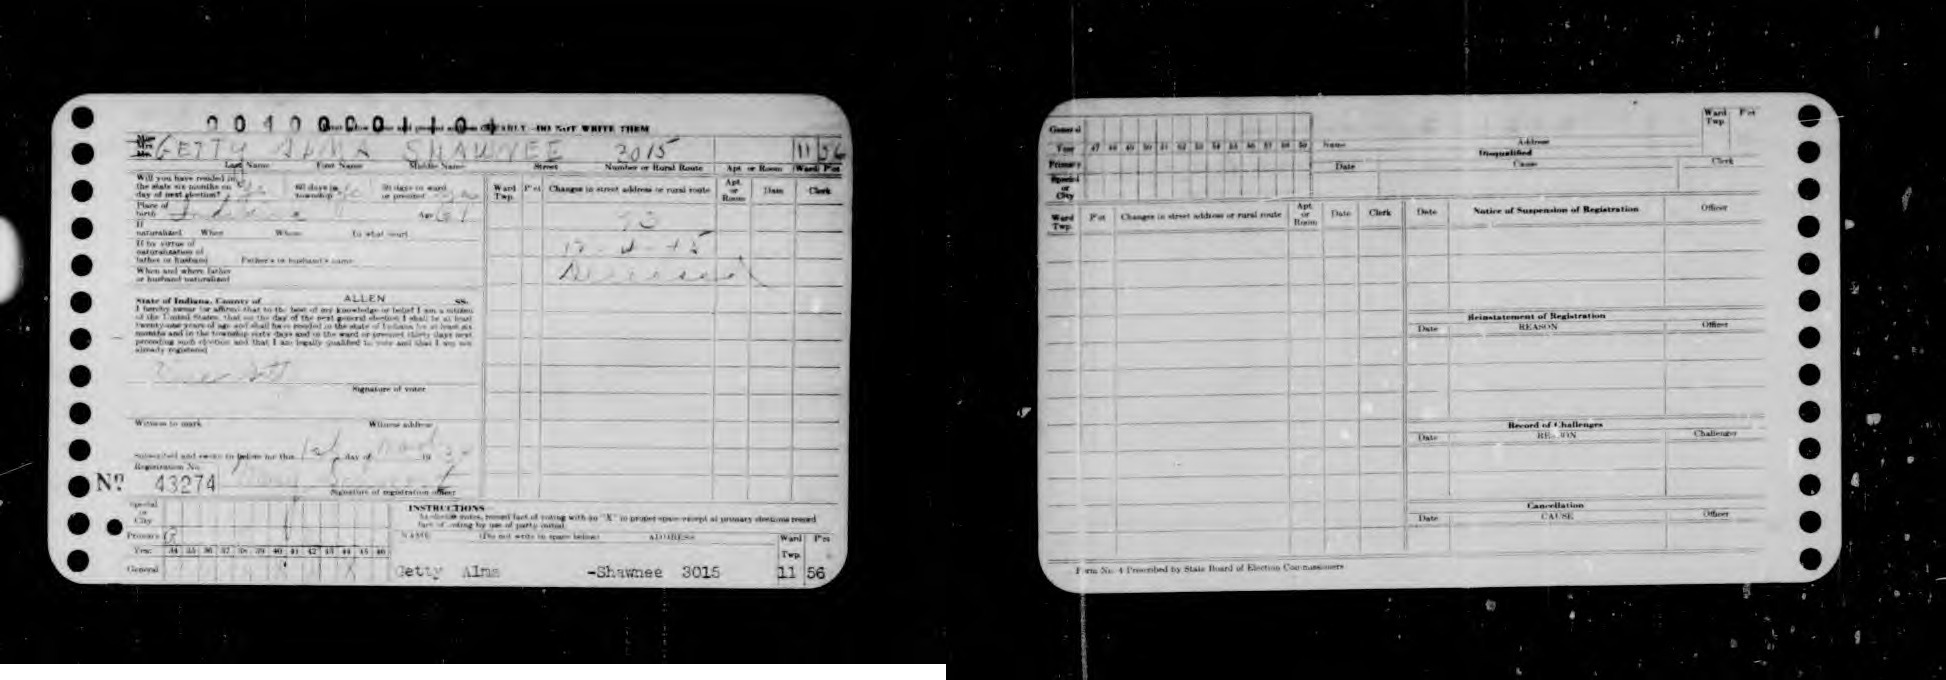 CLEARLY - DO NOT WRITE THEM
Mrs.
GETTY ALMA SHAWNEE 3015 11 56
Last Name First Name Middle Name Street Number or Rural Route Apt. or Room Ward P'ct
Will you have resided in
the state six months on 60 days in 30 days in ward
day of next election? township or precinct
Place of
birth Indiana Age
If
naturalized When Where In what court
If by virtue of
naturalization of
father or husband Father's or husband's name
When and where father
or husband naturalized
State of Indiana, County of ALLEN SS.
I hereby swear (or affirm) that to the best of my knowledge or belief I am a citizen
of the United States, that on the day of the next general election I shall be at least
twenty-one years of age and shall have resided in the state of Indiana for at least six
months and in the township sixty days and in the ward or precinct thirty days next
preceding such election and that I am legally qualified to vote and that I am not
already registered
Signature of voter
Witness to mark Witness address
Subscribed and sworn to before me this day of 19
Registration No.
Nº 43274
Signature of registration officer
Ward Twp. P'ct Changes in street address or rural route Apt. or Room Date Clerk
Deceased
Special
or
City
Primary R
Year 34 35 36 37 38 39 40 41 42 43 44 45 46
General
INSTRUCTIONS
record fact of voting with an "X" in proper space except at primary elections record
fact of voting by use of party initial
NAME (Do not write in space below) ADDRESS Ward Twp. P'ct
Getty Alma -Shawnee 3015 11 56
General
Year 47 48 49 50 51 52 53 54 55 56 57 58 59 Name Address Ward Twp. P'ct
Primary
Special
or
City
Disqualified
Date Cause Clerk
Ward Twp. P'ct Changes in street address or rural route Apt. or Room Date Clerk
Date Notice of Suspension of Registration Officer
Reinstatement of Registration
Date REASON Officer
Record of Challenges
Date REASON Challenger
Cancellation
Date CAUSE Officer
Form No. 4 Prescribed by State Board of Election Commissioners